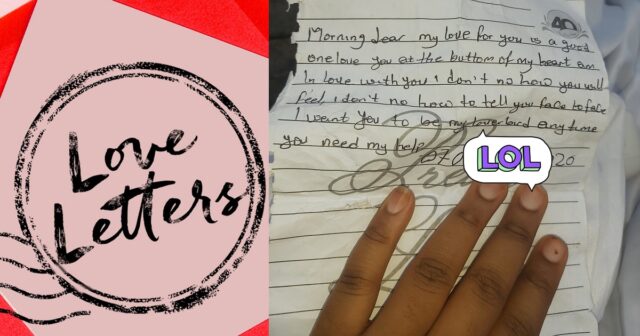 Love
Letters
40
Morning dear my love for you is a good
one love you at the bottom of my heart am
In love with you i don't no how you will
feel i don't no how to tell you face to face
I want you to be my love bird any time
you need my help
070
LOL
20